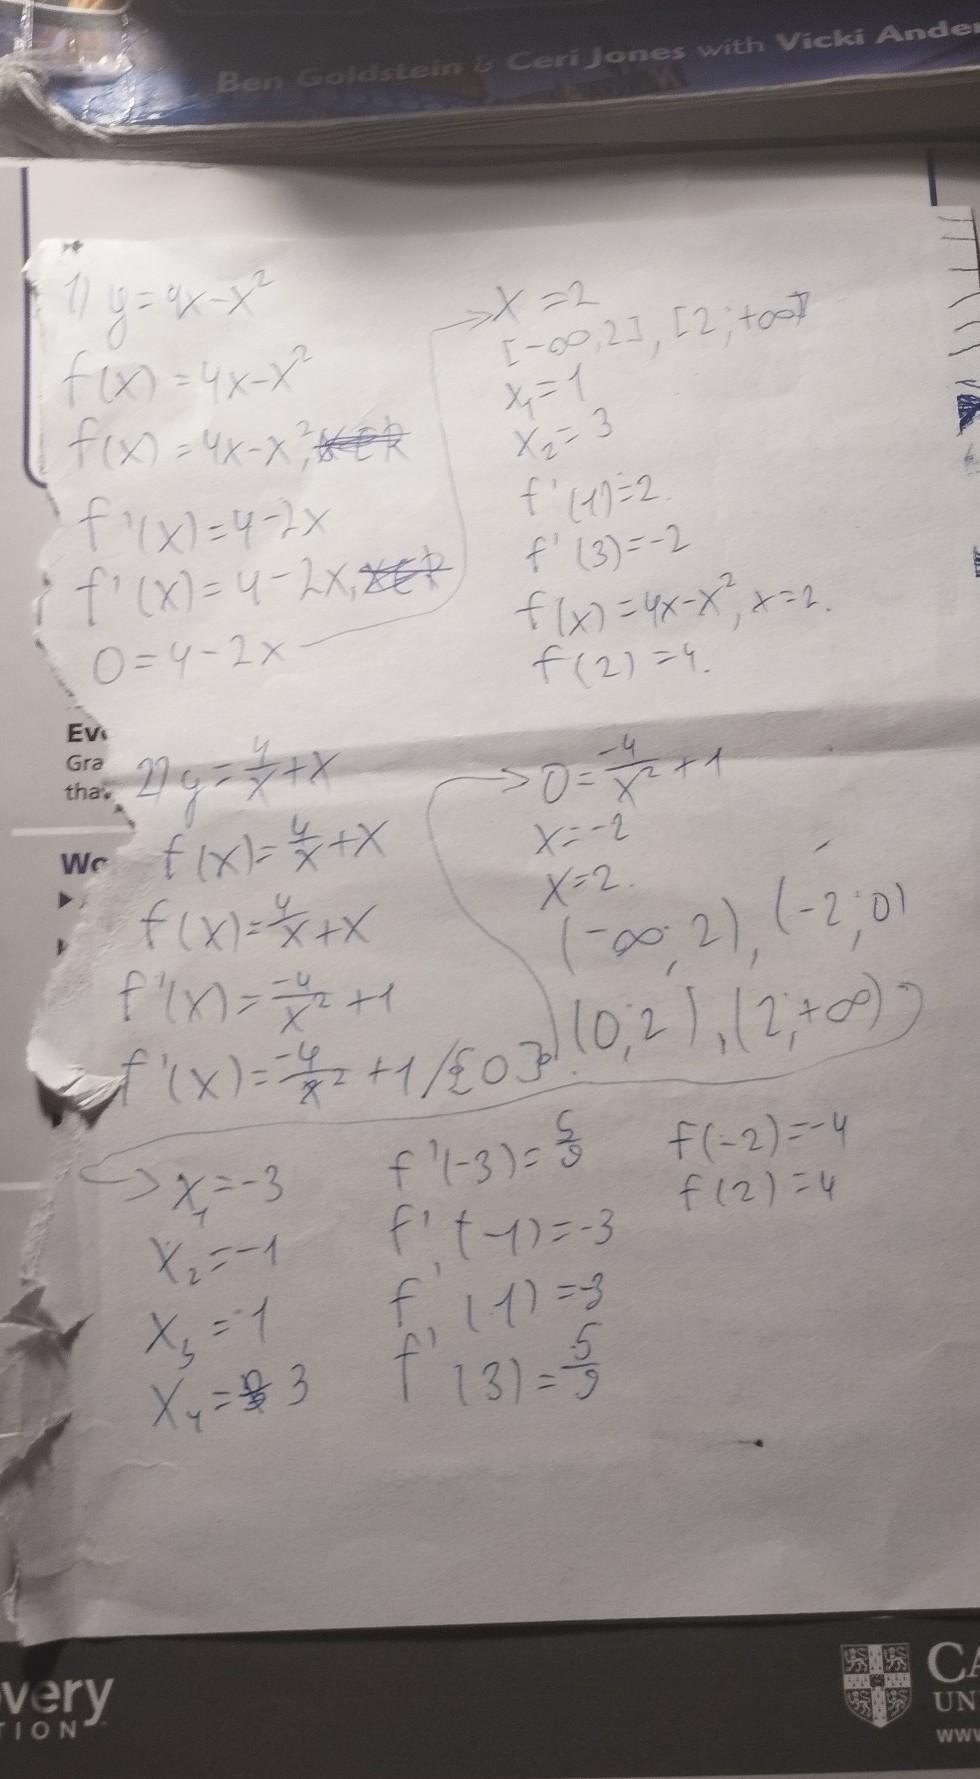 Ben Goldstein & Ceri Jones with Vicki Ander
1) y = 4x - x²
f(x) = 4x - x²
f(x) = 4x - x²,
f'(x) = 4 - 2x
f'(x) = 4 - 2x,
0 = 4 - 2x
x = 2
[-∞, 2], [2; +∞]
x₁ = 1
x₂ = 3
f'(1) = 2.
f'(3) = -2
f(x) = 4x - x², x = 2.
f(2) = 4.
Gra
tha
Wo
2) y = 4/x + x
f(x) = 4/x + x
f(x) = 4/x + x
f'(x) = -4/x² + 1
f'(x) = -4/x² + 1 / {0}
0 = -4/x² + 1
x = -2
x = 2.
(-∞; 2), (-2; 0)
(0; 2), (2; +∞)
x₁ = -3
x₂ = -1
x₃ = 1
x₄ = 3
f'(-3) = 5/9
f'(-1) = -3
f'(1) = -3
f'(3) = 5/9
f(-2) = -4
f(2) = 4
very
TION
CA
UN
www